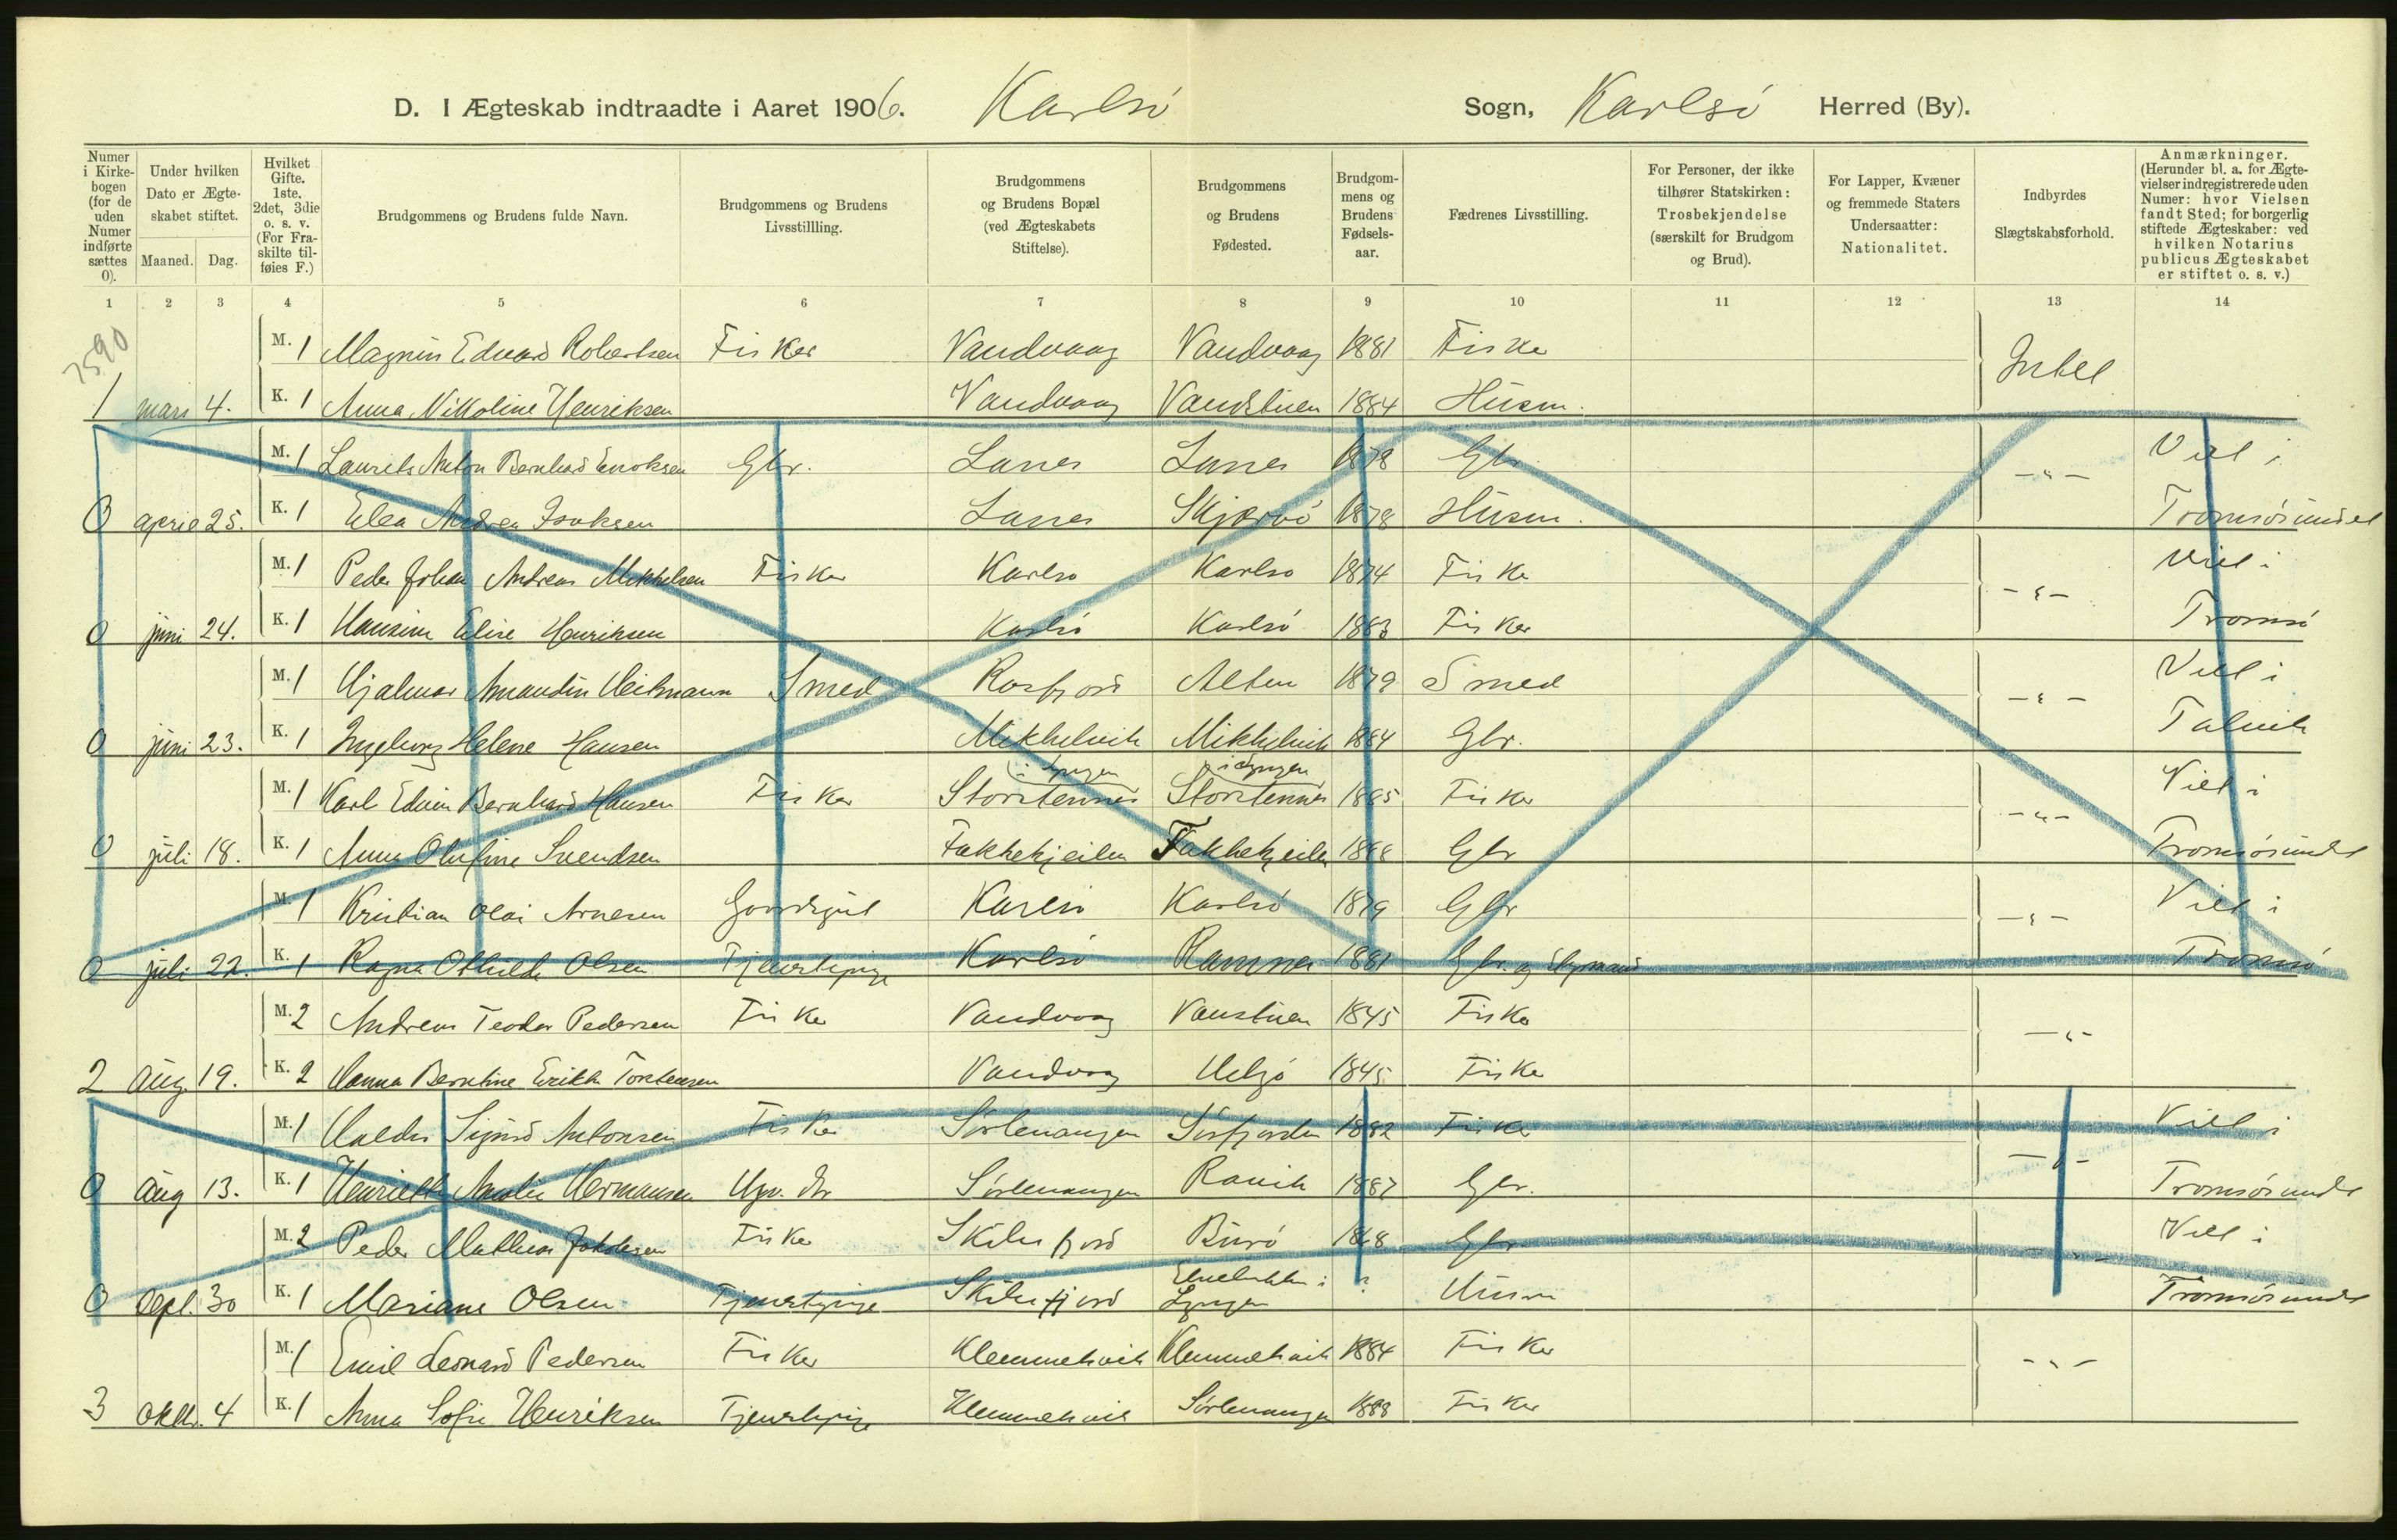 D. I Ægteskab indtraadte i Aaret 1906. Karlsö Sogn, Karlsö Herred (By).
Numer i Kirkebogen (for de uden Numer indførte sættes 0).
Under hvilken Dato er Ægteskabet stiftet. Maaned. Dag.
Hvilket Gifte. 1ste, 2det, 3die o. s. v. (For Fraskilte tilføies F.)
Brudgommens og Brudens fulde Navn.
Brudgommens og Brudens Livsstillling.
Brudgommens og Brudens Bopæl (ved Ægteskabets Stiftelse).
Brudgommens og Brudens Fødested.
Brudgommens og Brudens Fødselsaar.
Fædrenes Livsstilling.
For Personer, der ikke tilhører Statskirken: Trosbekjendelse (særskilt for Brudgom og Brud).
For Lapper, Kvæner og fremmede Staters Undersaatter: Nationalitet.
Indbyrdes Slægtskabsforhold.
Anmærkninger. (Herunder bl. a. for Ægtevielser indregistrerede uden Numer: hvor Vielsen fandt Sted; for borgerlig stiftede Ægteskaber: ved hvilken Notarius publicus Ægteskabet er stiftet o. s. v.)
1 2 3 4 5 6 7 8 9 10 11 12 13 14
7590
M. 1 Magnus Edvard Robertsen Fisker Vandvaag Vandvaag 1881 Fisker Intet
1 mars 4. K. 1 Anna Nikoline Henriksen Vandvaag Vandstuen 1884 Husm.
M. 1 Laurits Anton Bernhard Enoksen Gbr. Lanes Lanes 1878 Gbr. -"- Viel i
0 april 25. K. 1 Elea Andrea Isaksen Lanes Skjærvö 1878 Husm. Tromsösundet
M. 1 Peder Johan Andreas Mikkelsen Fisker Karlsö Karlsö 1874 Fisker -"- Viel i
0 juni 24. K. 1 Hansine Elise Henriksen Karlsö Karlsö 1883 Fisker Tromsö
M. 1 Hjalmar Amandin Heitmann Smed Rosfjord Alten 1879 Smed -"- Viel i
0 juni 23. K. 1 Ingeborg Helene Hansen Mikkelvik Mikkelvik 1884 Gbr. Talvik
M. 1 Karl Edvin Bernhard Hansen Fisker Storstennes i Lyngen Storstennes i Lyngen 1885 Fisker -"- Viel i
0 juli 18. K. 1 Anna Olufine Svendsen Fakkekjeilen Fakkekjeilen 1888 Gbr Tromsösundet
M. 1 Kristian Olai Arnesen Gaardsgut Karlsö Karlsö 1879 Gbr -"- Viel i
0 juli 22. K. 1 Ragna Othilde Olsen Tjenestepige Karlsö Ramnes 1881 Gbr. og Tromsö
M. 2 Andreas Teodor Pedersen Fisker Vandvaag Vanstuen 1845 Fisker -"-
2 Aug. 19. K. 2 Hanna Berntine Erikke Torstensen Vandvaag Helgö 1845 Fisker
M. 1 Haldor Sigurd Antonsen Fisker Sörlenangen Sörfjorden 1882 Fisker -"- Viel i
0 Aug 13. K. 1 Henriette Amalie Hermansen Sörlenangen Ravik 1887 Gbr. Tromsösundet
M. 2 Peder Mathias Jakobsen Fisker Skulsfjord Burö 1868 Gbr. Viel i
0 Sept. 30 K. 1 Mariane Olsen Tjenestepige Skulsfjord Lyngen ? Husm Tromsösundet
M. 1 Emil Leonard Pedersen Fisker Klemmetsvik Klemmetsvik 1884 Fisker -"-
3 Oktbr. 4 K. 1 Anna Sofie Henriksen Tjenestepige Klemmetsvik Sörlenangen 1883 Fisker